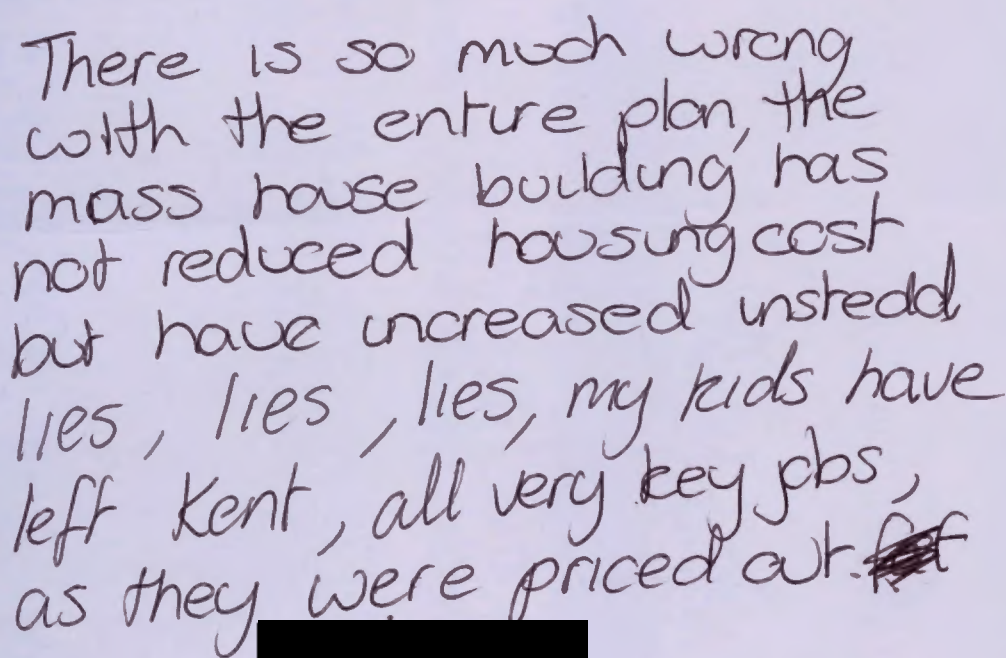 There is so much wrong
with the entire plan, the
mass house building has
not reduced housing cost
but have increased instedd
lies, lies, lies, my kids have
left Kent, all very key jobs,
as they were priced out.